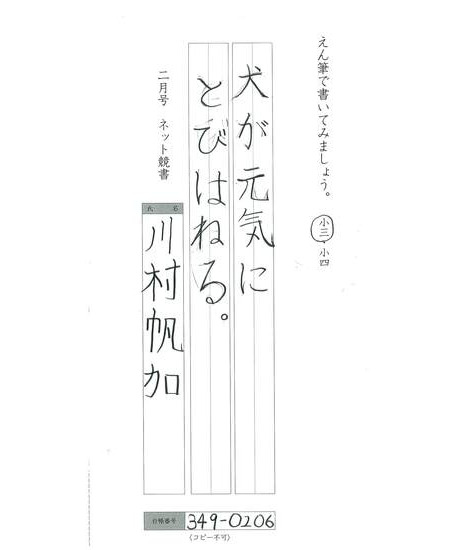 えん筆で書いてみましょう。
小三・小四
犬が元気に
とびはねる。
二月号 ネット競書
氏 名
川村帆加
合格番号 349-0206
(コピー不可)